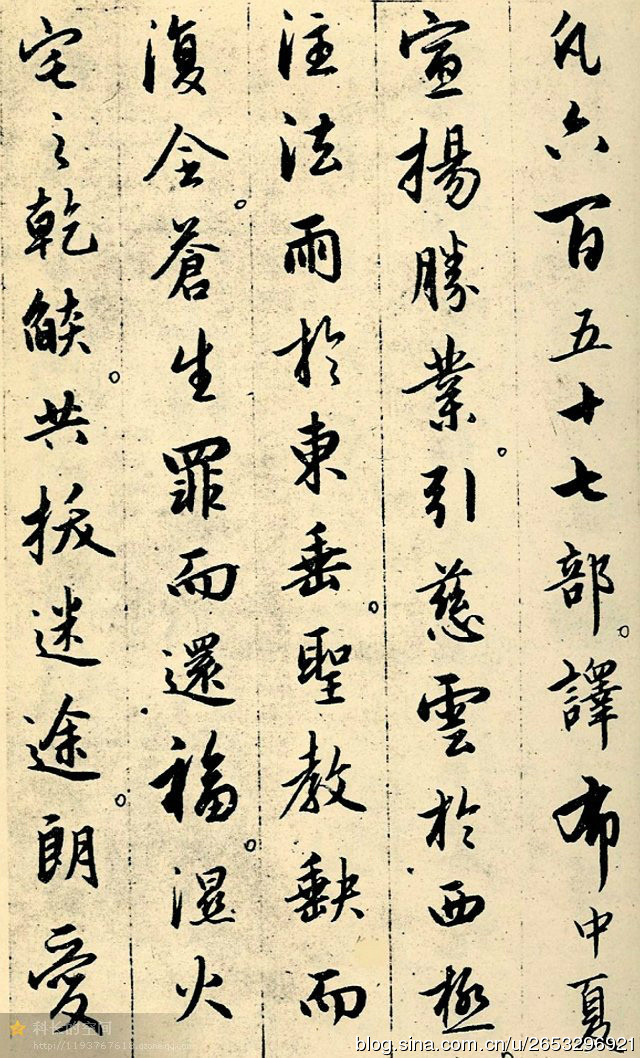 凡六百五十七部譯布中夏
宣揚勝業引慈雲於西極
注法雨於東垂聖教缺而
復全蒼生罪而還福濕火
宅之乾燄共拔迷途朗愛
科长的空间
http://1193767618.qzone.qq.com
blog.sina.com.cn/u/2653296921